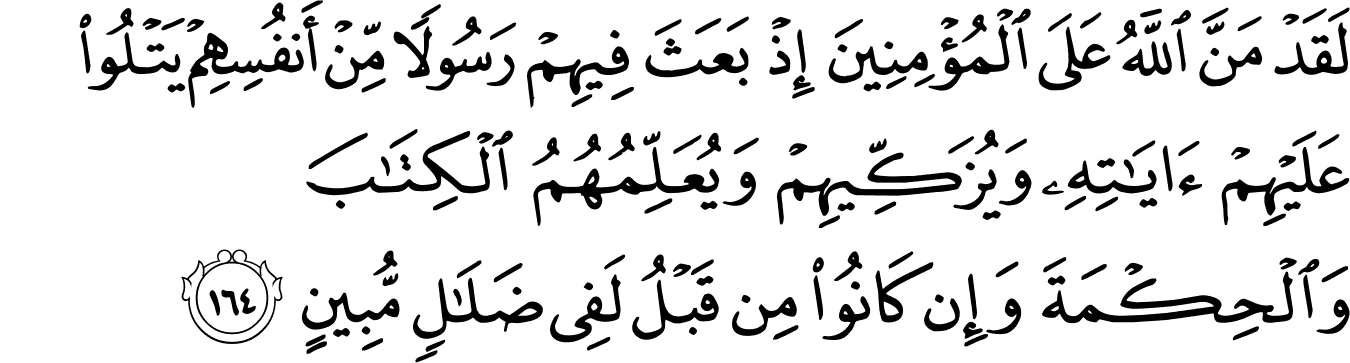 لَقَدْ مَنَّ ٱللَّهُ عَلَى ٱلْمُؤْمِنِينَ إِذْ بَعَثَ فِيهِمْ رَسُولًا مِّنْ أَنفُسِهِمْ يَتْلُوا۟
عَلَيْهِمْ ءَايَـٰتِهِۦ وَيُزَكِّيهِمْ وَيُعَلِّمُهُمُ ٱلْكِتَـٰبَ
وَٱلْحِكْمَةَ وَإِن كَانُوا۟ مِن قَبْلُ لَفِى ضَلَـٰلٍ مُّبِينٍ ١٦٤